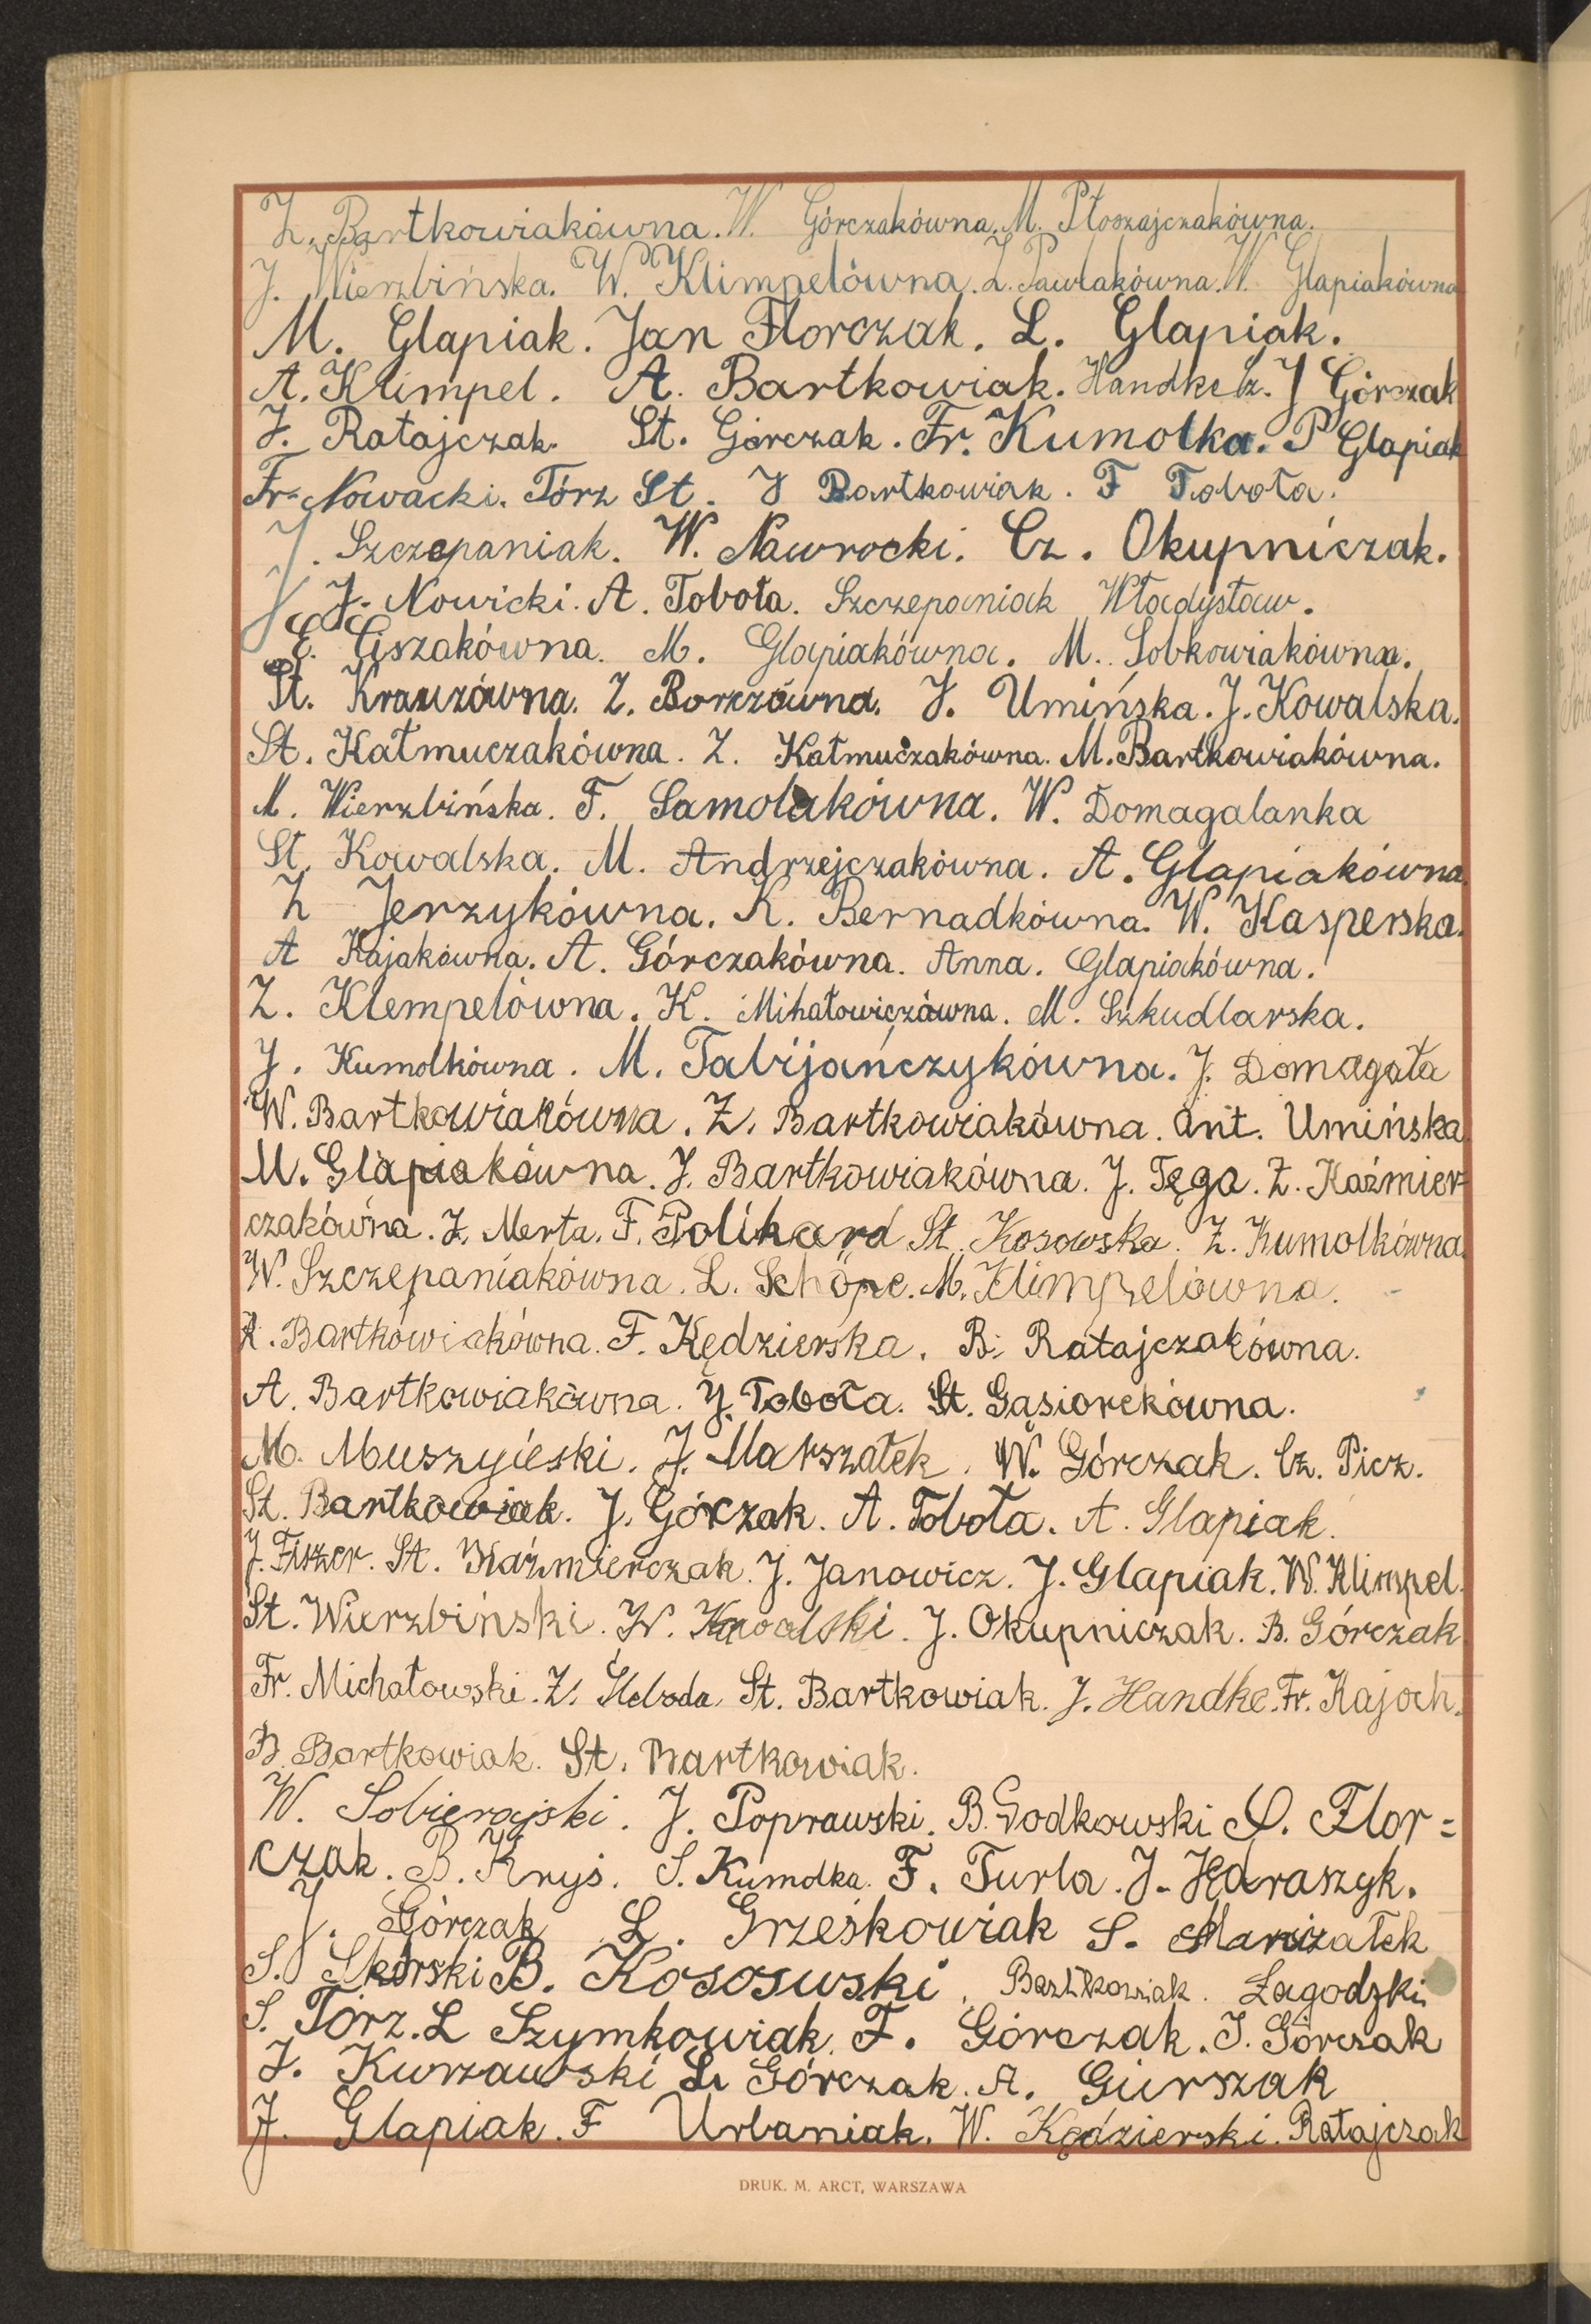 Z. Bartkowiakówna. W. Górczakówna. M. Płoszajczakówna.
J. Wierzbińska. W. Klimpelówna. L. Pawlakówna. W. Glapiakówna
M. Glapiak. Jan Florczak. L. Glapiak.
A. Klimpel. A. Bartkowiak. Handke Cz. J Górczak
J. Ratajczak. St. Górczak. Fr. Kumolka. P Glapiak
Fr. Nowacki. Tórz St. J Bartkowiak. F Tobota.
J. Szczepaniak. W. Nawrocki. Cz. Okupniczak.
J. Nowicki. A. Tobota. Szczepaniak Władysław.
E. Ciszakówna. M. Glapiakówna. M. Sobkowiakówna.
St. Krauzówna. Z. Borczówna. J. Umińska. J. Kowalska.
St. Katmuczakówna. Z. Katmuczakówna. M. Bartkowiakówna.
M. Wierzbińska. F. Samolakówna. W. Domagalanka
St. Kowalska. M. Andrzejczakówna. A. Glapiakówna.
Z Jerzykówna. K. Bernadkówna. W. Kasperska.
A Kajakówna. A. Górczakówna. Anna. Glapiakówna.
Z. Klempelówna. K. Mihałowiczówna. M. Szkudlarska.
J. Kumolkówna. M. Tabijańczykówna. J. Domagała
W. Bartkowiakówna. Z. Bartkowiakówna. Ant. Umińska
M. Glapiakówna. J. Bartkowiakówna. J. Tęga. Z. Kaźmier-
czakówna. J. Merta. F. Polihard St. Kosowska. Z. Kumolkówna.
W. Szczepaniakówna. L. Schöpe. M. Klimpelówna.
K. Bartkowiakówna. F. Kędzierska. B. Ratajczakówna.
A. Bartkowiakówna. J. Tobota. St. Gąsiorekówna.
M. Muszyieski. J. Marszałek. W. Górczak. Cz. Picz.
St. Bartkowiak. J. Górczak. A. Tobota. A. Glapiak.
J. Fiszer. St. Kaźmierczak. J. Janowicz. J. Glapiak. W. Klimpel.
St. Wierzbiński. W. J. Okupniczak. B. Górczak
Fr. Michałowski. Z. St. Bartkowiak. J. Handke. Fr. Kajoch.
B. Bartkowiak. St. Bartkowiak.
W. Sobierajski. J. Poprawski. B. Godkowski Flor=
czak. B. Kryś. S. Kumolka. F. Turla. J. Kędraszyk.
J. Górczak L. Grześkowiak S. Marszałek
S. Skórski B. Kososwski. Bartkowiak. Łagodzki
S. Tórz. L Szymkowiak. F. Górczak. J. Górczak
J. Kurzawski L. Górczak. A. Gurszak
J. Glapiak. F Urbaniak. W. Kędzierski. Ratajczak
DRUK. M. ARCT, WARSZAWA